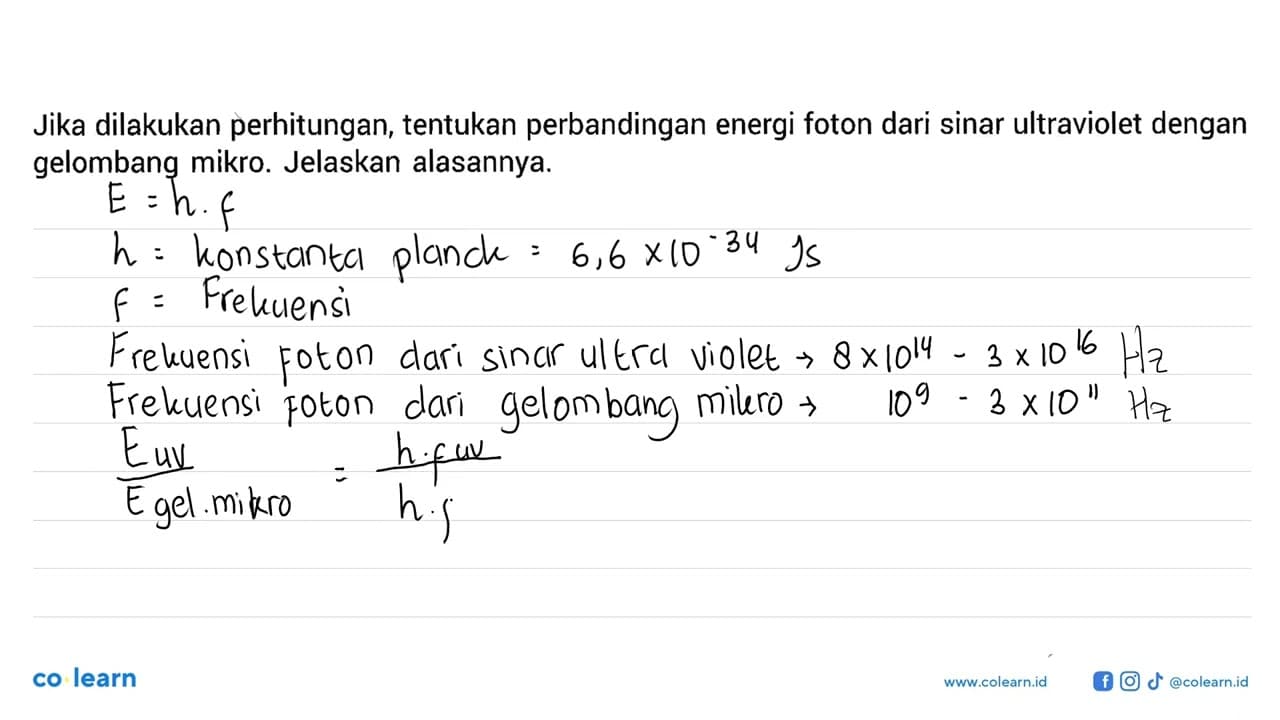 Jika dilakukan perhitungan, tentukan perbandingan energi foton dari sinar ultraviolet dengan
gelombang mikro. Jelaskan alasannya.
E = h . f
h = konstanta planck = 6,6 × 10⁻³⁴ Js
f = Frekuensi
Frekuensi Foton dari sinar ultra violet → 8 × 10¹⁴ - 3 × 10¹⁶ Hz
Frekuensi Foton dari gelombang mikro → 10⁹ - 3 × 10¹¹ Hz
E uv / E gel.mikro = h.f uv / h.f
co learn
www.colearn.id
@colearn.id